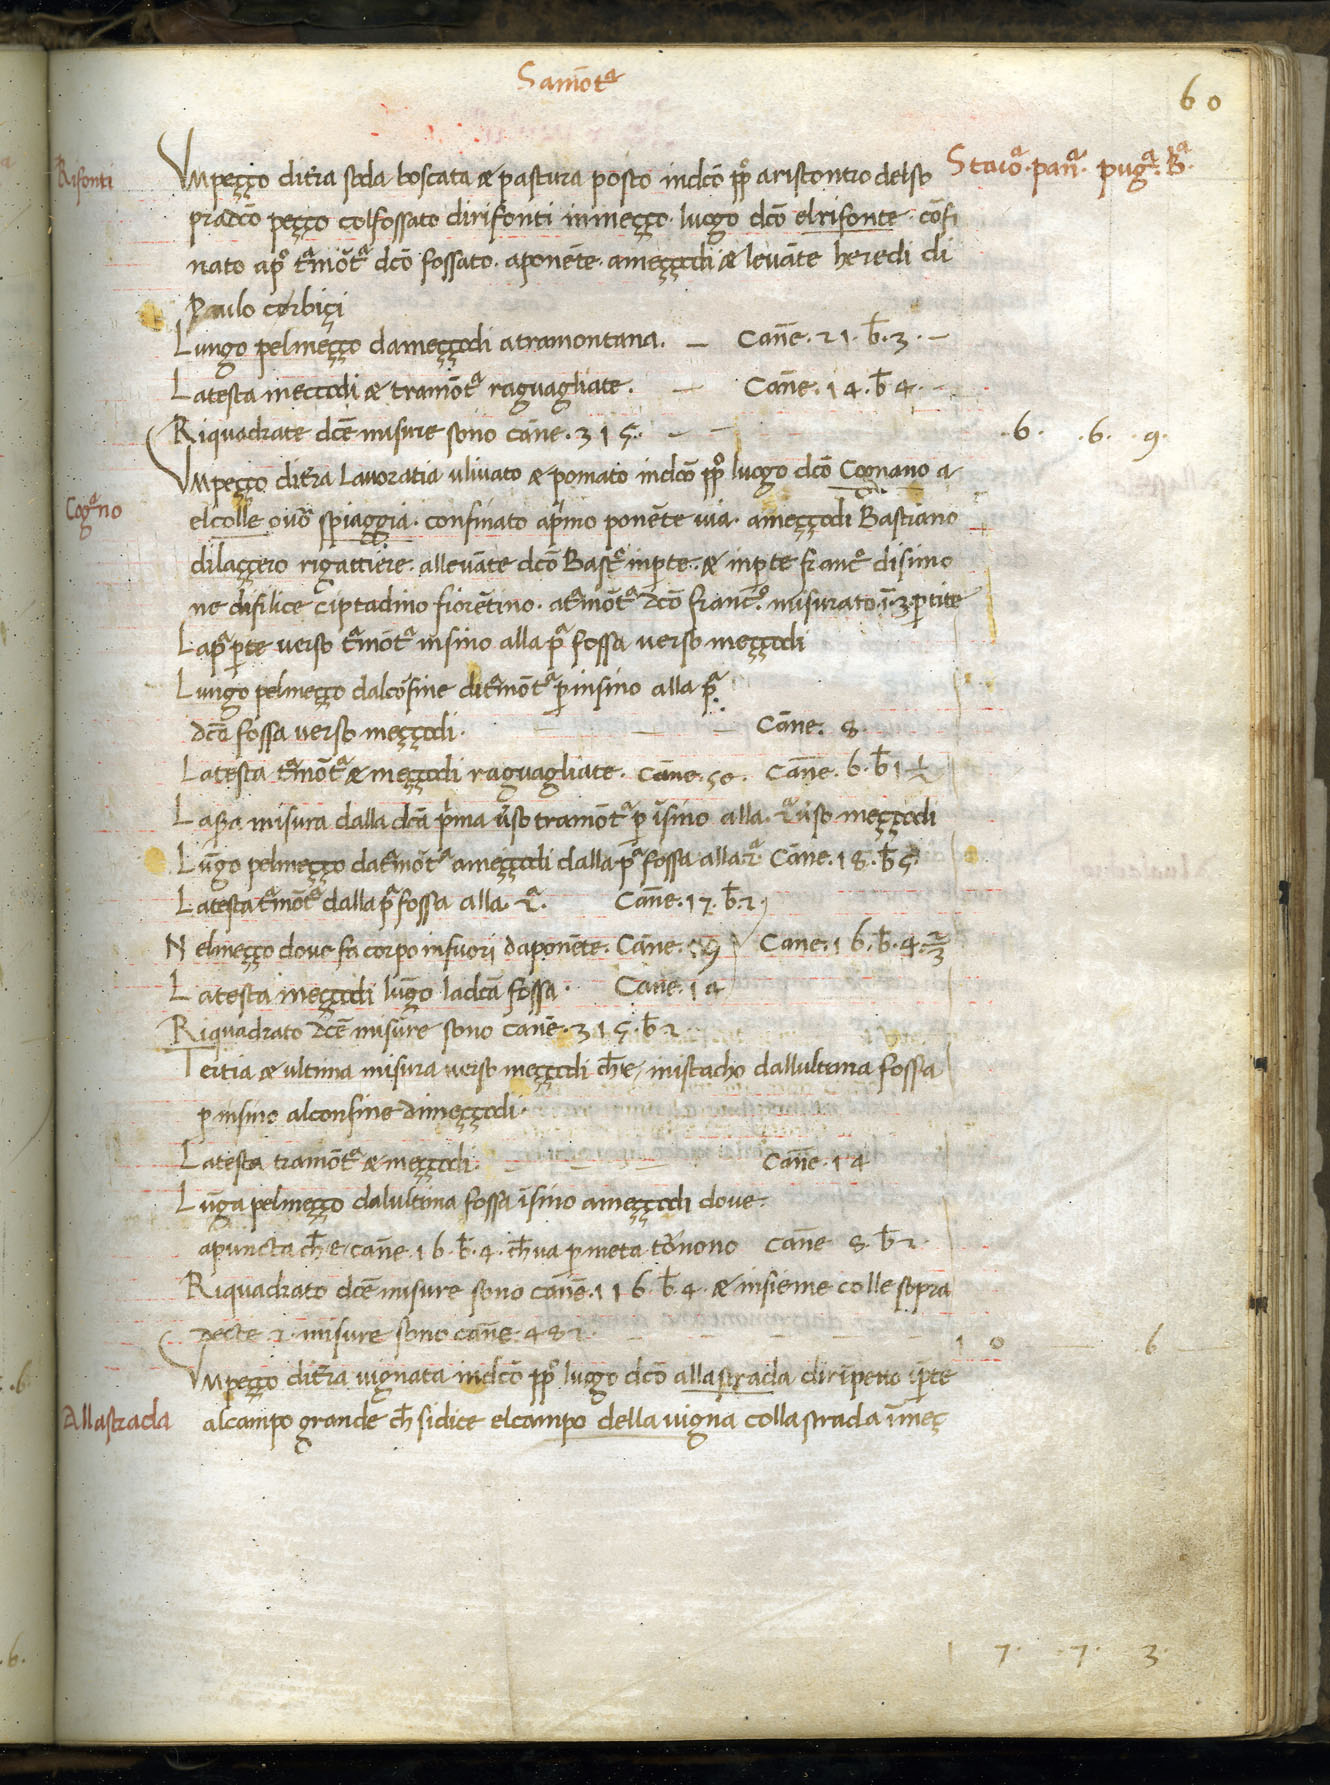 Samōtᵃ
60
Rifonti
Vmpeçço dit̄ra soda boscata & pastura posto indcō ppº ariscontro delso
Staioᵃ. panᵃ. pugᵃ. Bᵃ.
pradcō peçço colfossato dirifonti inmeçço. luogo dcō elrifonte. cōfi
nato apº tᵃmōtᵃ dcō fossato. aponēte. ameççodi & levāte heredi di
Paulo corbiçi
Lungo pelmeçço dameççodi atramontana. — Canne. 21. b̄. 3. —
Latesta meççodi & tramōtᵃ raguagliate. — Canne. 14. b̄ 4. —
Riquadrate dcē misure sono cāne. 315. — — .6. .6. .9.
Vmpeçço dit̄ra Lavoratia ulivato & pomato indcō ppº luogo dcō Cognano a
Cogᵃno
elcolle ovō spiaggia. confinato apimo ponēte via. ameççodi Bastiano
dilaççero rigattiere. allevāte dcō Bastº inpte. & inpte francº disimo
ne difilice ciptadino fiorētino. atᵃmōtᵃ dcō francº. misurato. ī. 3. ptite
Lapᵃ pte verso tᵃmōtᵃ insino alla pᵃ fossa verso meççodi
Lungo pelmeçço dalcōfine ditᵃmōtᵃ p insino alla pᵃ
dcā fossa verso meççodi. — — — Cāne. 8.
Latesta tᵃmōtᵃ & meççodi raguagliate. Cāne. 50. Cāne. 6. b̄ 1 ½
La 2ᵃ misura dalla dcā pima ūso tramōtᵃ p īsino alla. 2ᵃ ūso meççodi
Lūgo pelmeçço datᵃmōtᵃ ameççodi dalla pᵃ fossa alla 2ᵃ Cāne. 18. b̄ 5
Latesta tᵃmōtᵃ dalla pᵃ fossa alla. 2ᵃ. Cāne. 17. b̄. 2
Nelmeçço dove fa corpo infuori daponēte. Cāne. 19 Cane. 16. b̄. 4. ⅔
Latesta meççodi lūgo ladcā fossa. Cāne. 14
Riquadrato dcē misure sono canē. 315. b̄ 2
Tertia & ultima misura verso meççodi ch̄e, inistacho dallultima fossa
p insino alconfine dimeççodi.
Latesta tramōtᵃ & meççodi. — — — Cāne. 14
Lūga pelmeçço dalultima fossa īsino ameççodi dove.
apuncta ch̄ e, cāne. 16. b̄. 4. ch̄ va p meta tōrnono Canne 8. b̄ 2.
Riquadrato dcē misure sono canē. 116. b̄. 4. & insieme colle sopra
decte 2. misure sono cāne. 482. — — — 1 0 — 6
Vmpeçço dit̄ra vignata indcō ppº luogo dcō allastrada dirīpetto īpte
Allastrada
alcampo grande ch̄ sidice elcampo della vigna collastrada īmeç
1 7. .7. 3.